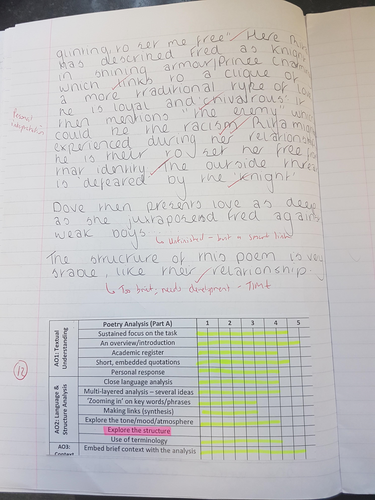 to set me free" Here Rita
has described Fred as Knight
in shining armour/Prince Charm
which links to a clique of
a more traditional type of lov
he is loyal and chivalrous. R
then mentions "the enemy" whic
could be the racism Rita migh
experienced during her relationshi
he is their to set her free fr
that identity. The outside threa
is defeated by the 'Knight'
Personal
interpretation
Dove then presents love as deep
as she juxtaposed Fred again
weak boys.
Unfinished - but a smart link
The structure of this poem is very
stable, like their relationship.
Too brief, needs development - TIME
12
Poetry Analysis (Part A) 1 2 3 4 5
AO1: Textual Understanding
Sustained focus on the task
An overview/introduction
Academic register
Short, embedded quotations
Personal response
AO2: Language & Structure Analysis
Close language analysis
Multi-layered analysis – several ideas
'Zooming in' on key words/phrases
Making links (synthesis)
Explore the tone/mood/atmosphere
Explore the structure
Use of terminology
AO3: Context
Embed brief context with the analysis